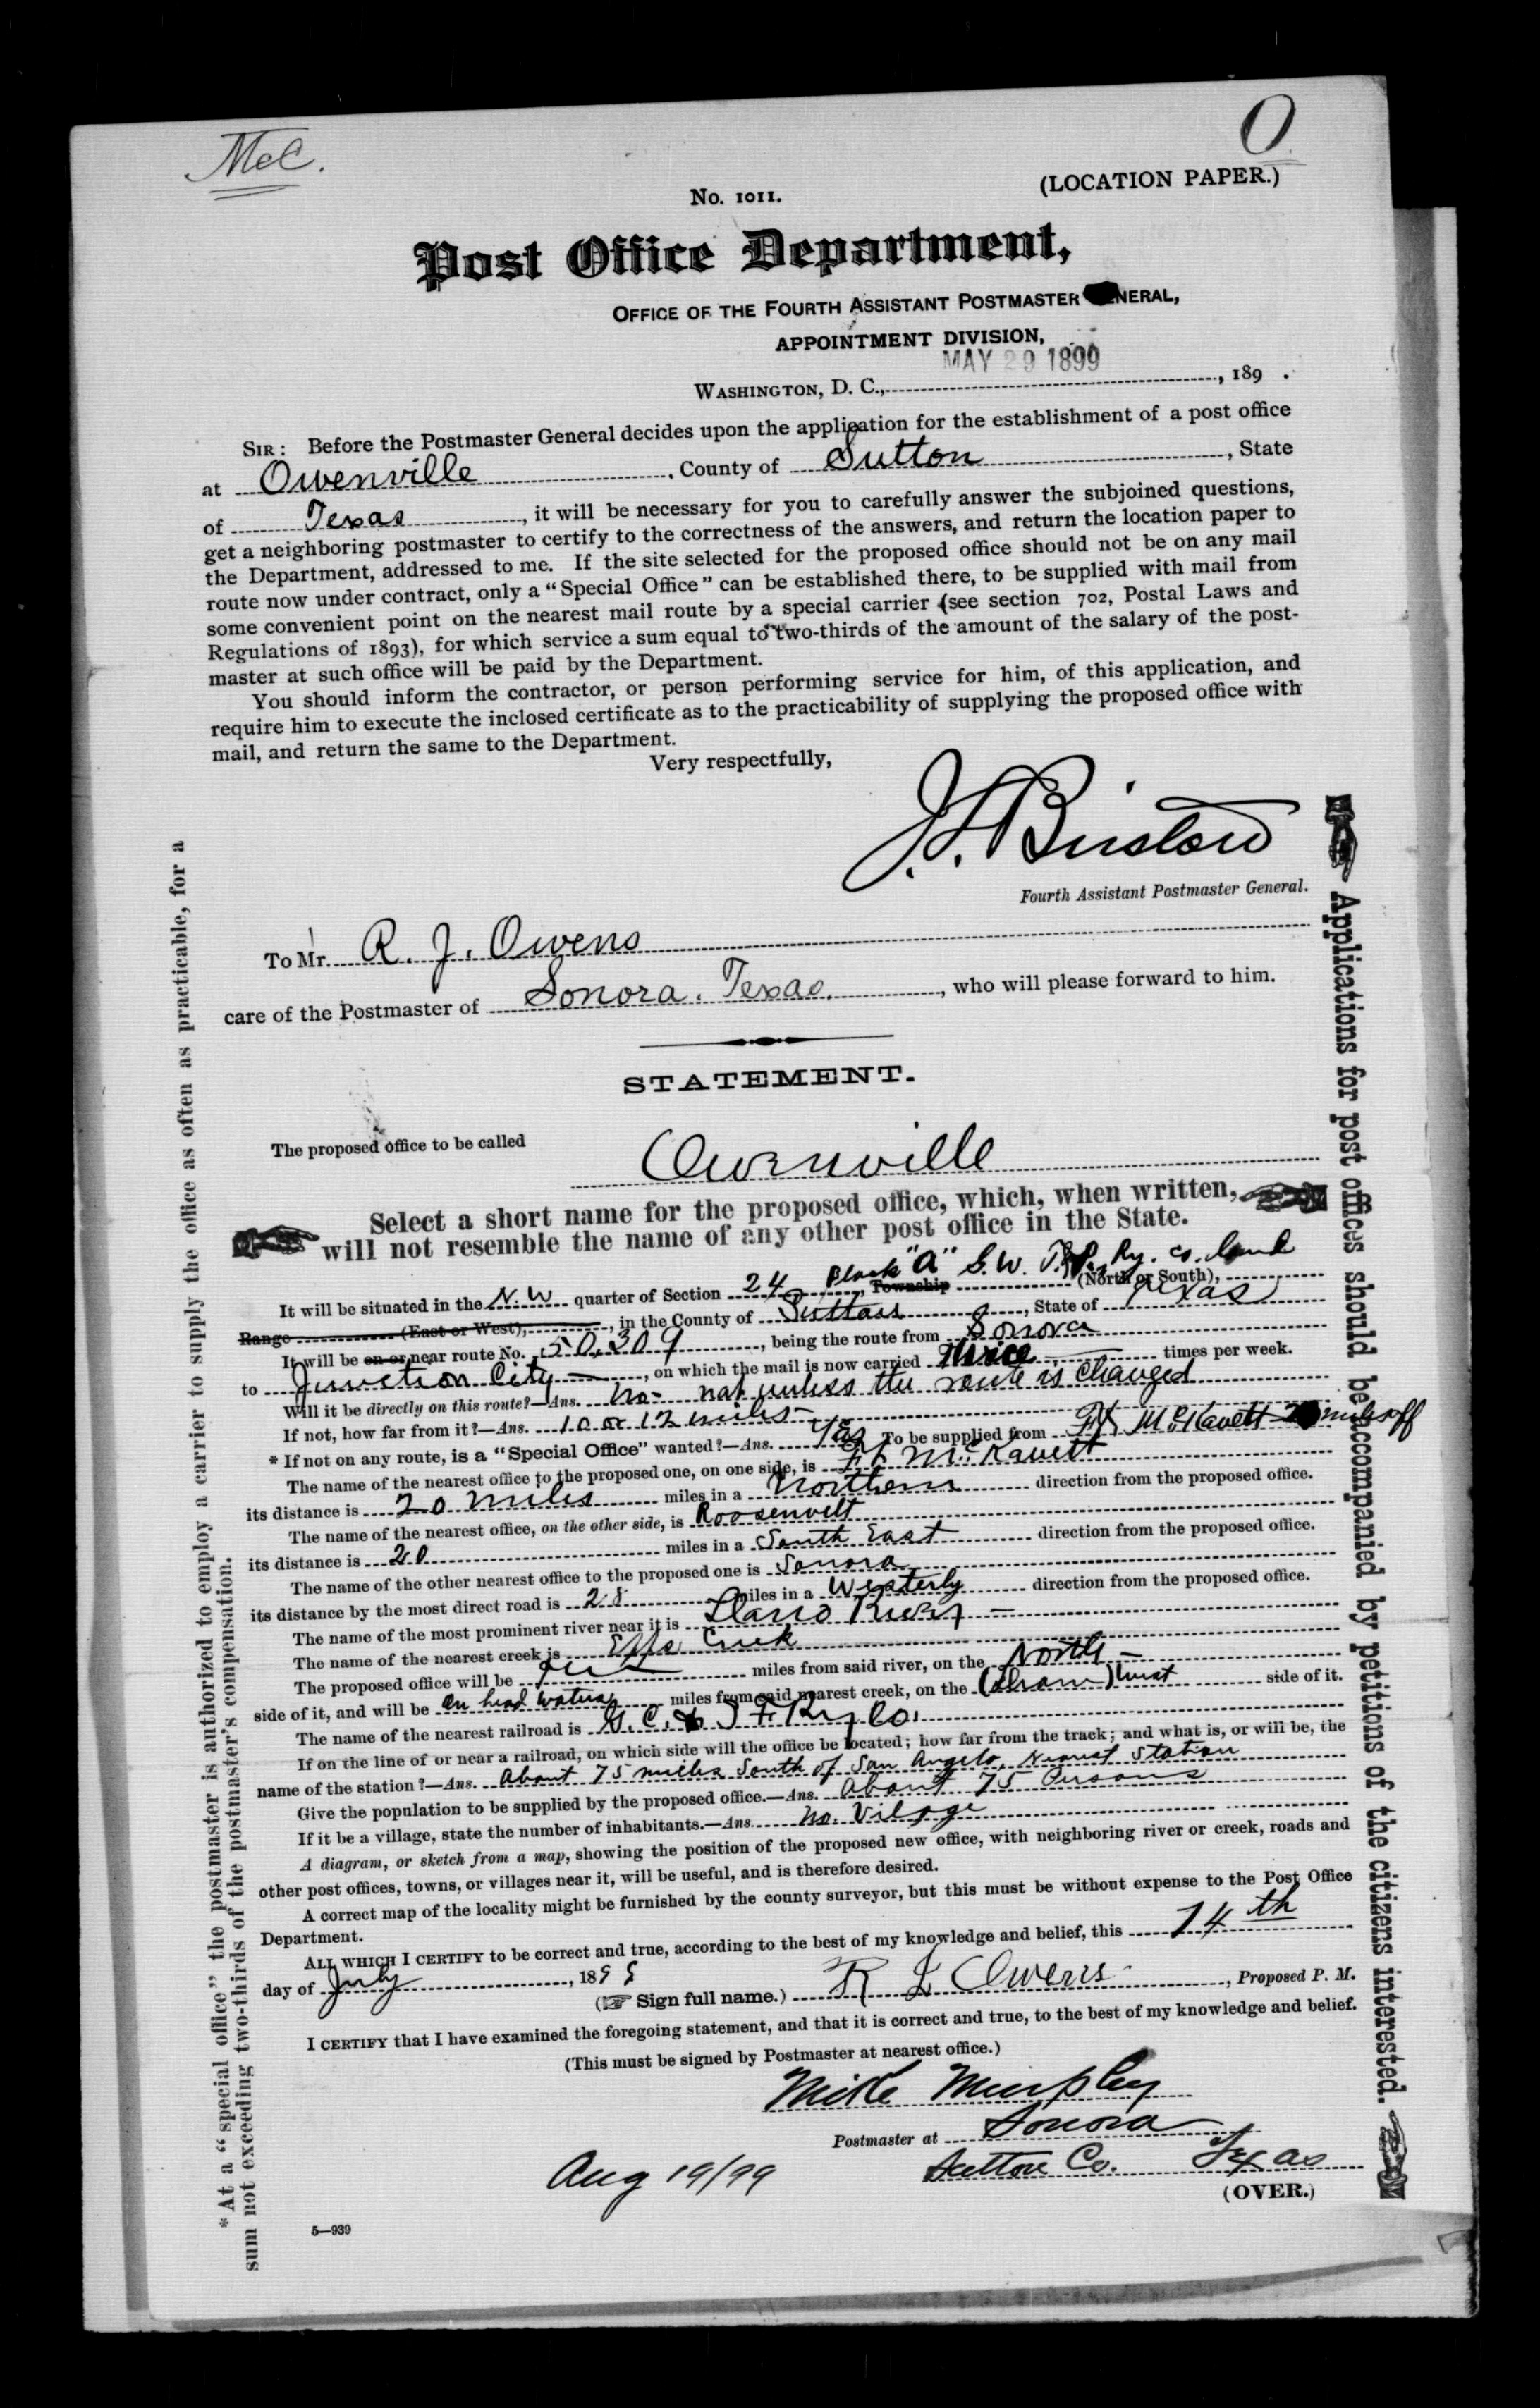 McC.
O
(LOCATION PAPER.)
No. 1011.
Post Office Department,
OFFICE OF THE FOURTH ASSISTANT POSTMASTER GENERAL,
APPOINTMENT DIVISION,
MAY 29 1899
WASHINGTON, D. C., , 189 .
SIR: Before the Postmaster General decides upon the application for the establishment of a post office
at Owenville , County of Sutton , State
of Texas , it will be necessary for you to carefully answer the subjoined questions,
get a neighboring postmaster to certify to the correctness of the answers, and return the location paper to
the Department, addressed to me. If the site selected for the proposed office should not be on any mail
route now under contract, only a "Special Office" can be established there, to be supplied with mail from
some convenient point on the nearest mail route by a special carrier (see section 702, Postal Laws and
Regulations of 1893), for which service a sum equal to two-thirds of the amount of the salary of the post-
master at such office will be paid by the Department.
You should inform the contractor, or person performing service for him, of this application, and
require him to execute the inclosed certificate as to the practicability of supplying the proposed office with
mail, and return the same to the Department.
Very respectfully,
J. L. Bristow
Fourth Assistant Postmaster General.
To Mr. R. J. Owens
care of the Postmaster of Sonora, Texas. , who will please forward to him.
STATEMENT.
The proposed office to be called Owenville
Select a short name for the proposed office, which, when written,
will not resemble the name of any other post office in the State.
Block "A" G.W. T. & P. Ry. Co. Land
It will be situated in the N. W quarter of Section 24 , Township (North or South),
Range (East or West), , in the County of Sutton , State of Texas
It will be on or near route No. 50,309 , being the route from Sonora
to Junction City , on which the mail is now carried thrice times per week.
Will it be directly on this route?—Ans. No - not unless the route is changed
If not, how far from it?—Ans. 10 or 12 miles
* If not on any route, is a "Special Office" wanted?—Ans. Yes To be supplied from Ft McKavett 20 miles off
The name of the nearest office to the proposed one, on one side, is Ft McKavett
its distance is 20 miles miles in a Northern direction from the proposed office.
The name of the nearest office, on the other side, is Roosenvelt
its distance is 20 miles in a South East direction from the proposed office.
The name of the other nearest office to the proposed one is Sonora
its distance by the most direct road is 28 miles in a Westerly direction from the proposed office.
The name of the most prominent river near it is Llano River
The name of the nearest creek is Creek
The proposed office will be ten miles from said river, on the North
side of it, and will be on head waters miles from said nearest creek, on the side of it.
The name of the nearest railroad is G. C. & S F Ry Co.
If on the line of or near a railroad, on which side will the office be located; how far from the track; and what is, or will be, the
name of the station?—Ans. About 75 miles South of San Angelo, nearest Station
Give the population to be supplied by the proposed office.—Ans. About 75 Persons
If it be a village, state the number of inhabitants.—Ans. No. Vilage
A diagram, or sketch from a map, showing the position of the proposed new office, with neighboring river or creek, roads and
other post offices, towns, or villages near it, will be useful, and is therefore desired.
A correct map of the locality might be furnished by the county surveyor, but this must be without expense to the Post Office
Department.
ALL WHICH I CERTIFY to be correct and true, according to the best of my knowledge and belief, this 14th
day of July , 1899
(☞ Sign full name.) R J Owens , Proposed P. M.
I CERTIFY that I have examined the foregoing statement, and that it is correct and true, to the best of my knowledge and belief.
(This must be signed by Postmaster at nearest office.)
Mike Murphy
Postmaster at Sonora
Aug 19/99 Sutton Co. Texas
(OVER.)
5—939
* At a "special office" the postmaster is authorized to employ a carrier to supply the office as often as practicable, for a
sum not exceeding two-thirds of the postmaster's compensation.
Applications for post offices should be accompanied by petitions of the citizens interested.